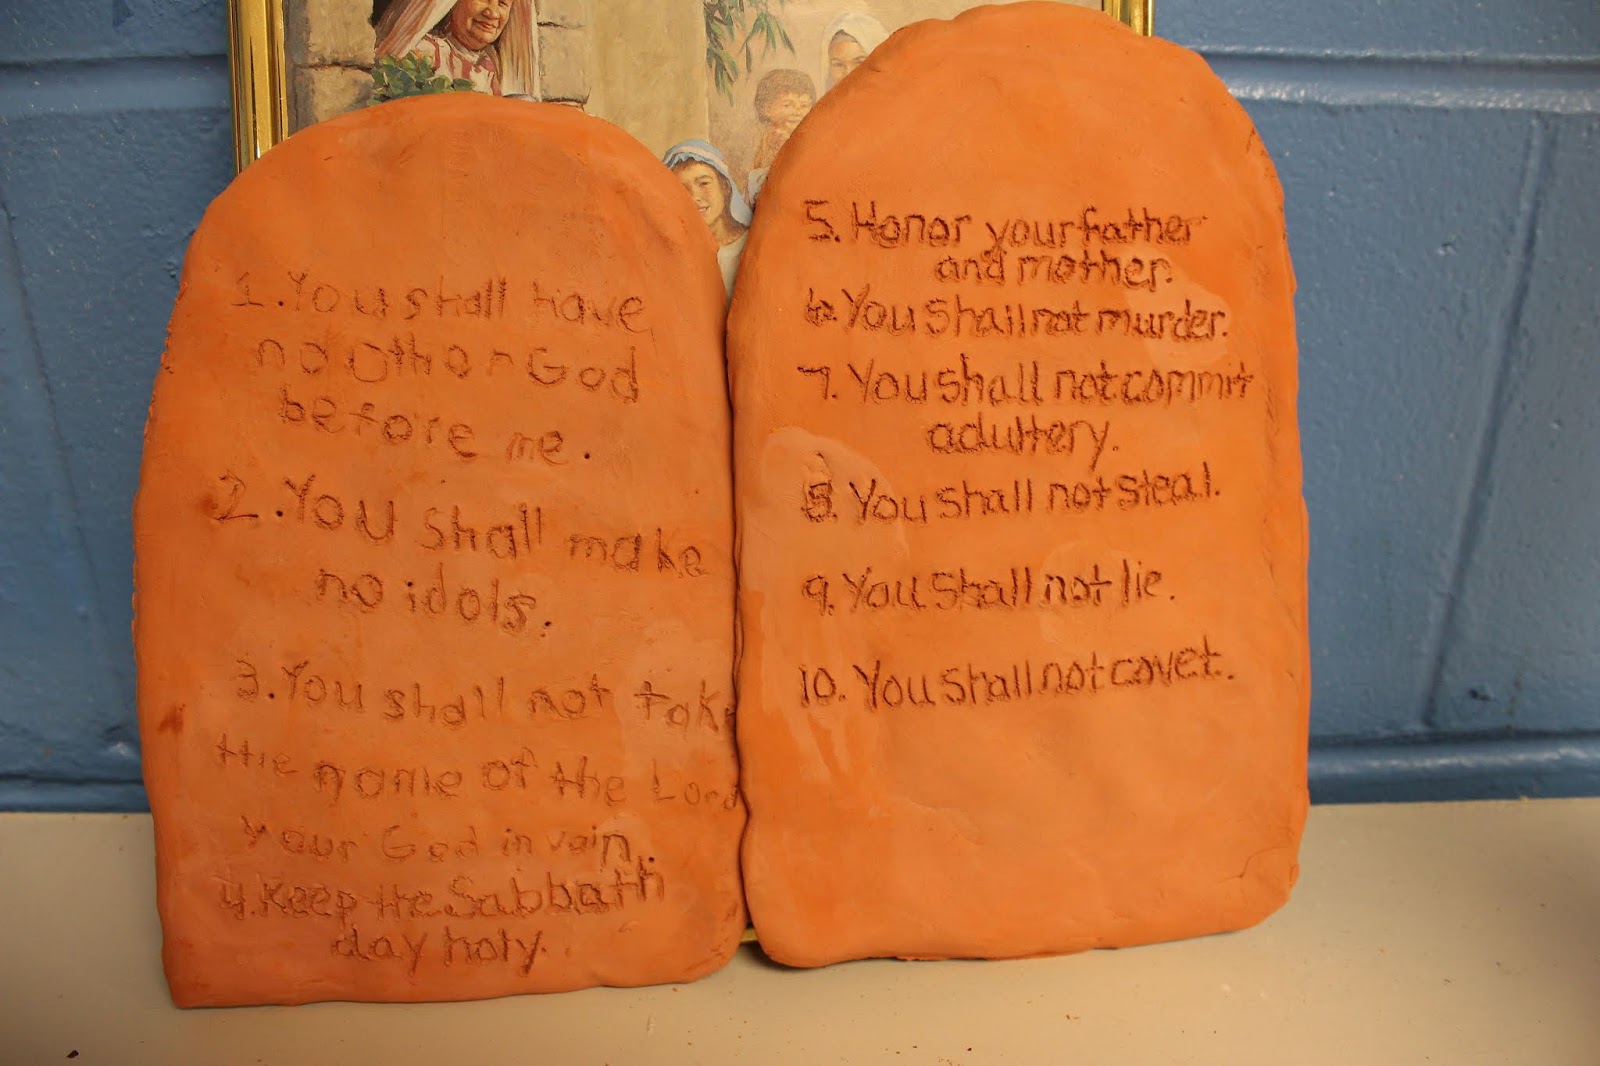 1. You shall have
no other God
before me.
2. You shall make
no idols.
3. You shall not take
the name of the Lord
your God in vain.
4. Keep the Sabbath
day holy.
5. Honor your father
and mother.
6. You shall not murder.
7. You shall not commit
adultery.
8. You shall not steal.
9. You shall not lie.
10. You shall not covet.